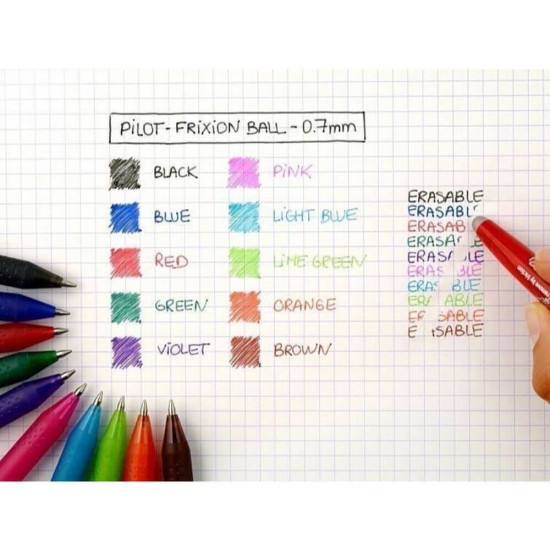 PiLOT - FRiXiON BALL - 0.7mm
BLACK
BLUE
RED
GREEN
ViOLET
PiNK
LiGHT BLUE
LiME GREEN
ORANGE
BROWN
ERASABLE
ERASABL
ERASAB
ERASA
ERASA BLE
ERAS BLE
ERAS BLE
ER ABLE
E SABLE
E SABLE